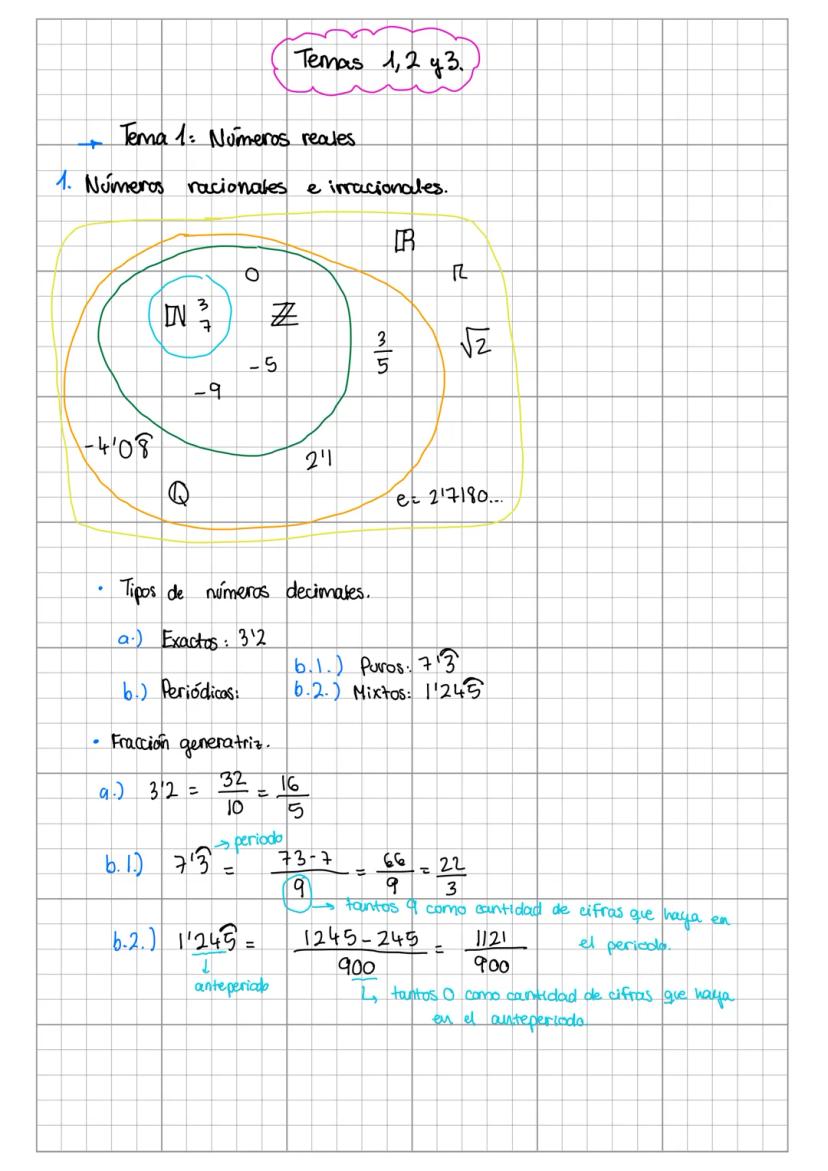 Temas 1, 2 y 3.
→ Tema 1: Números reales
1. Números racionales e irracionales.
ℝ
0
π
ℕ 3
7
ℤ
3/5
√2
-5
-9
-4'08̂
2'1
ℚ
e = 2'7180...
• Tipos de números decimales.
a.) Exactos: 3'2
b.) Periódicos:
b.1.) Puros: 7'3̂
b.2.) Mixtos: 1'245̂
• Fracción generatriz.
a.) 3'2 = 32/10 = 16/5
→ periodo
b.1.) 7'3̂ = 73-7/9 = 66/9 = 22/3
→ tantos 9 como cantidad de cifras que haya en
el periodo.
b.2.) 1'245̂ = 1245-245/900 = 1121/900
↓
anteperiodo
↳ tantos 0 como cantidad de cifras que haya
en el anteperiodo